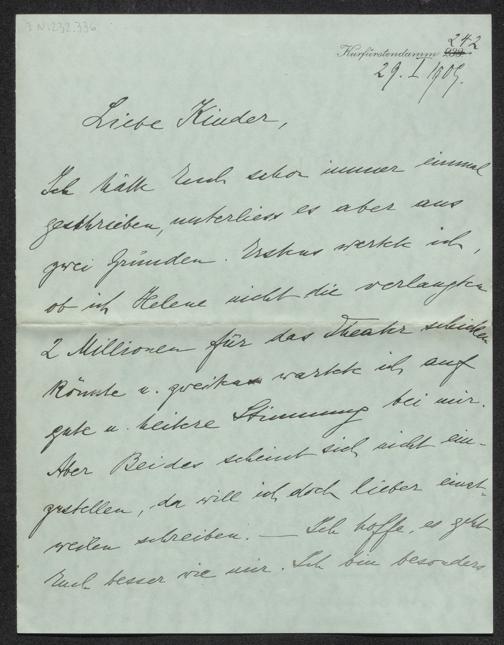 I N 232.336
Kurfürstendamm 242
29. I 1909.
Liebe Kinder,
Ich hätte Euch schon immer einmal
geschrieben, unterliess es aber aus
zwei Gründen. Erstens wartete ich,
ob ich Helene nicht die verlangten
2 Millionen für das Theater schicken
könnte u. zweitens wartete ich auf
gute u. heitere Stimmung bei mir.
Aber Beides scheint sich nicht ein-
zustellen, da will ich doch lieber einst-
weilen schreiben. — Ich hoffe, es geht
Euch besser wie mir. Ich bin besonders